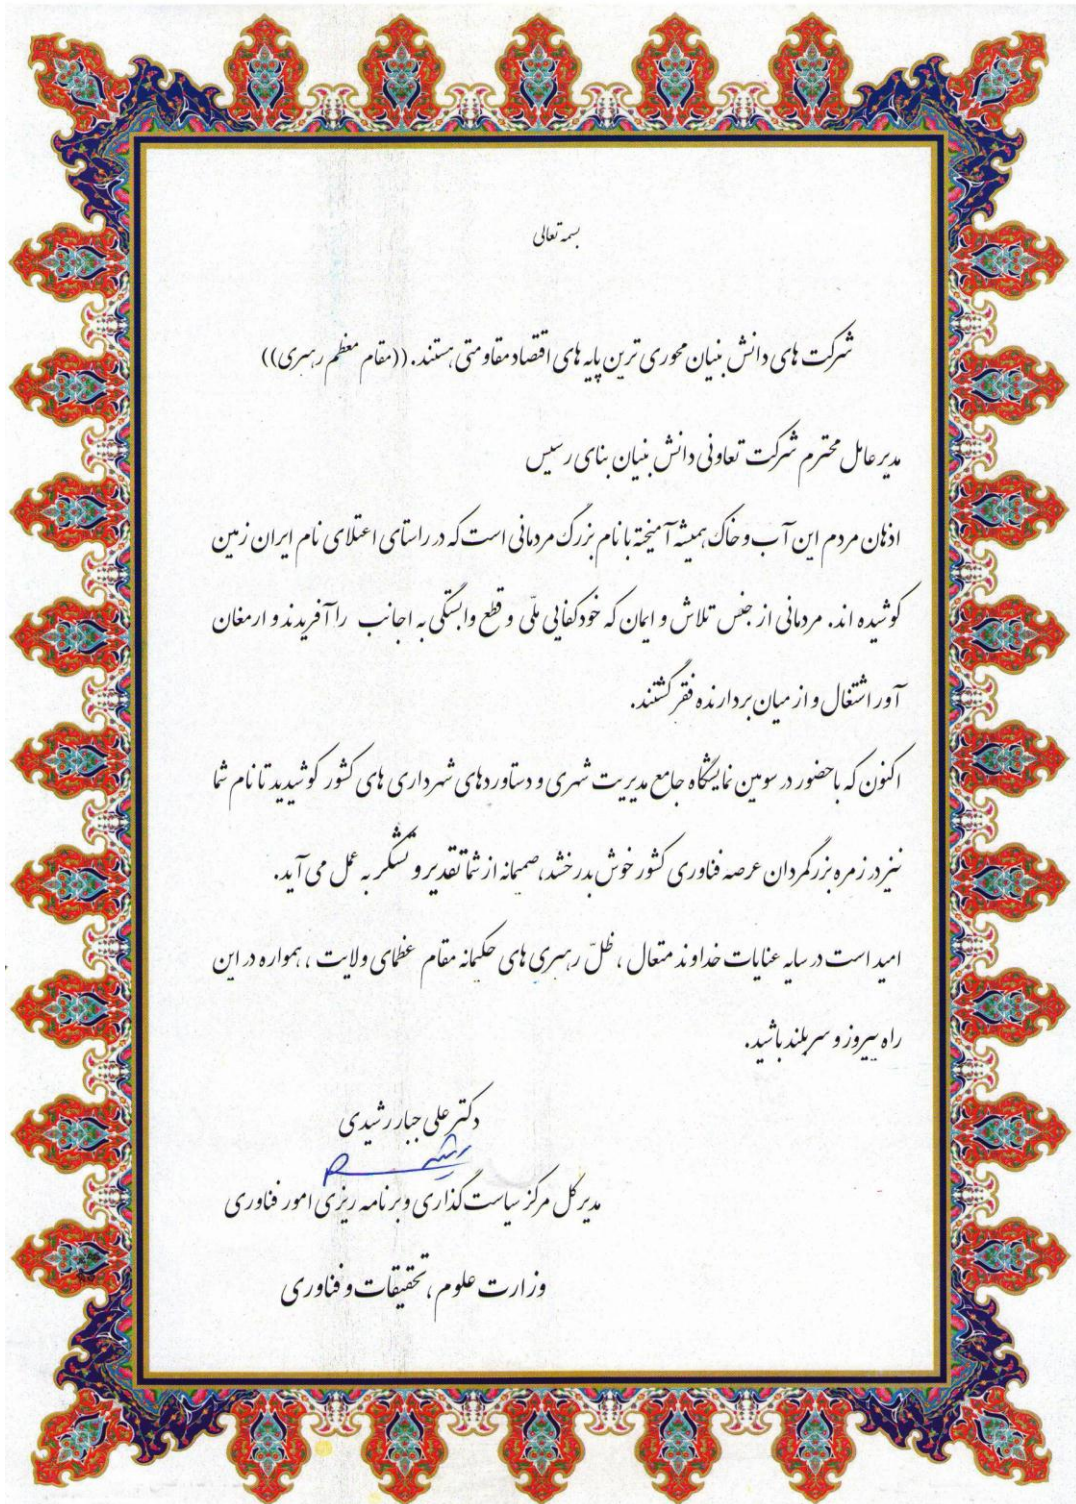 بسمه تعالی
شرکت های دانش بنیان محوری ترین پایه های اقتصاد مقاومتی هستند. ((مقام معظم رهبری))
مدیرعامل محترم شرکت تعاونی دانش بنیان بنای رسیس
اذهان مردم این آب و خاک همیشه آمیخته با نام بزرگ مردمانی است که در راستای اعتلای نام ایران زمین
کوشیده اند. مردمانی از جنس تلاش و ایمان که خودکفایی ملّی و قطع وابستگی به اجانب را آفریدند و ارمغان
آور اشتغال و از میان بردارنده فقر گشتند.
اکنون که با حضور در سومین نمایشگاه جامع مدیریت شهری و دستاوردهای شهرداری های کشور کوشیدید تا نام شما
نیز در زمره بزرگمردان عرصه فناوری کشور خوش بدرخشد، صمیمانه از شما تقدیر و تشکر به عمل می آید.
امید است در سایه عنایات خداوند متعال ، ظلّ رهبری های حکیمانه مقام عظمای ولایت ، همواره در این
راه پیروز و سربلند باشید.
دکتر علی جبار رشیدی
مدیرکل مرکز سیاست گذاری و برنامه ریزی امور فناوری
وزارت علوم ، تحقیقات و فناوری